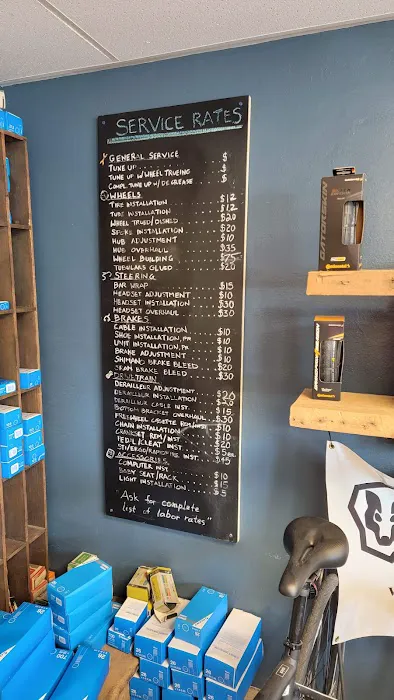 SERVICE RATES
GENERAL SERVICE
TUNE UP $
TUNE UP W/WHEEL TRUEING $
COMPL. TUNE UP W/DEGREASE $
WHEELS
TIRE INSTALLATION $12
TUBE INSTALLATION $12
WHEEL TRUED/DISHED $20
SPOKE INSTALLATION $20
HUB ADJUSTMENT $10
HUB OVERHAUL $35
WHEEL BUILDING $75
TUBULARS GLUED $20
STEERING
BAR WRAP $15
HEADSET ADJUSTMENT $10
HEADSET INSTALLATION $30
HEADSET OVERHAUL $30
BRAKES
CABLE INSTALLATION $10
SHOE INSTALLATION, PR $10
UNIT INSTALLATION, PR $10
BRAKE ADJUSTMENT $10
SHIMANO BRAKE BLEED $20
SRAM BRAKE BLEED $30
DRIVETRAIN
DERAILLEUR ADJUSTMENT
DERAILLEUR INSTALLATION $20
DERAILLEUR CABLE INST.
BOTTOM BRACKET OVERHAUL
FREEWHEEL CASSETTE REM/INST
CHAIN INSTALLATION $10
CRANKSET REM/INST
PEDAL/CLEAT INST.
INST.
ACCESSORIES
COMPUTER INST. $10
BABY SEAT/RACK $15
LIGHT INSTALLATION $5
"Ask for complete
list of labor rates"
Continental